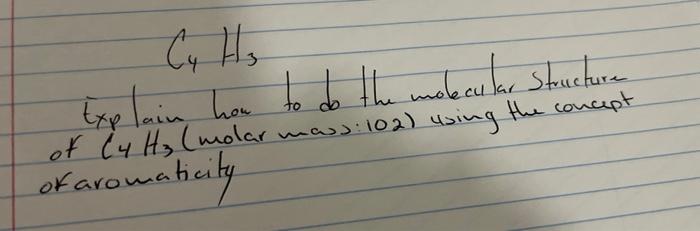 C₄ H₃
Explain how to do the molecular structure
of C4 H3 (molar mass: 102) using the concept
of aromaticity